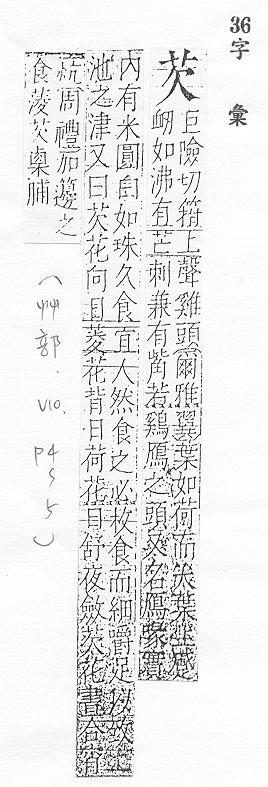 36 字彙
芡 巨險切箝上聲雞頭爾雅翼葉如荷而大葉上蹙
衂如沸有芒刺兼有觜若鷄鴈之頭故名鴈喙實
內有米圓白如珠久食宜人然食之必枚食而細嚼足以致上
池之津又曰芡花向日菱花背日荷花日舒夜斂芡花晝合宵
炕周禮加籩之
食菱芡㮚脯
(艸部.V10.P455)